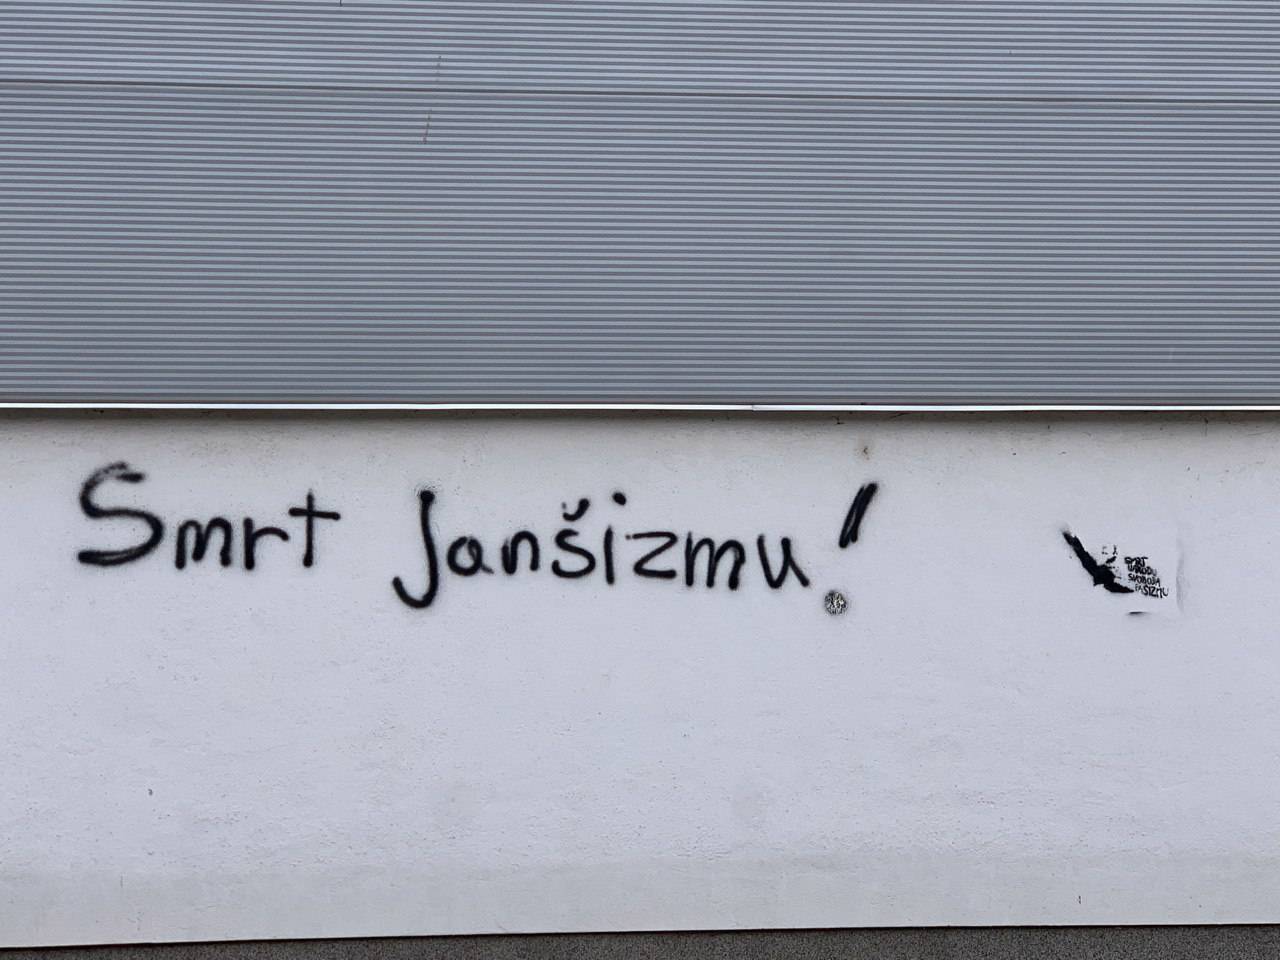 Smrt Janšizmu!
SMRT
NARODU
SVOBODA
FAŠIZMU